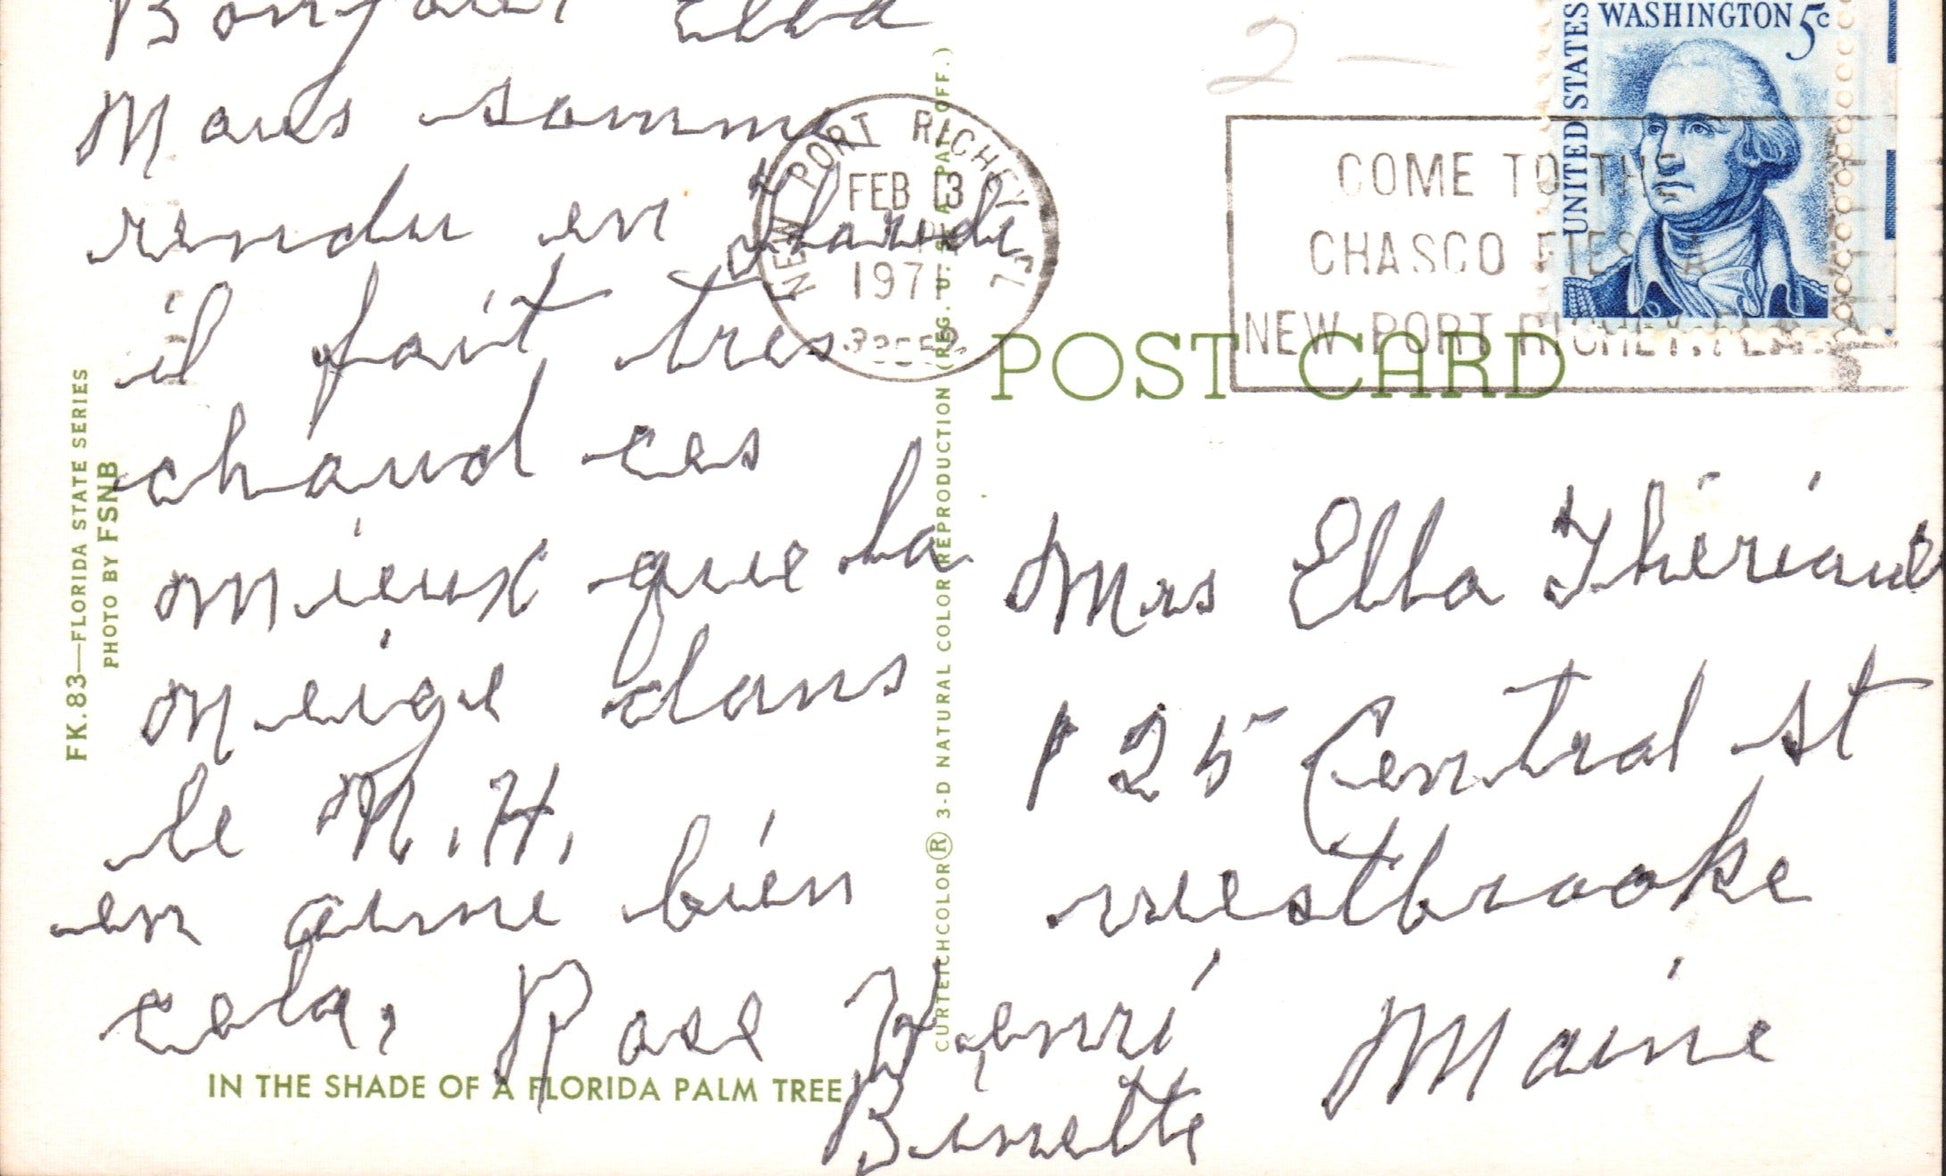 Bonjour Ella
Nous somme
rendu en Floride
il fait tres
chaud ces
mieux que la
neige dans
le N.H.
en aime bien
cela, Rose Henri
Binette
IN THE SHADE OF A FLORIDA PALM TREE
FK.83—FLORIDA STATE SERIES
PHOTO BY FSNB
CURTEICHCOLOR® 3-D NATURAL COLOR REPRODUCTION (REG. U.S.A. PAT. OFF.)
NEW PORT RICHEY
FEB 13
1971
2 —
UNITED STATES
WASHINGTON 5c
COME TO THE
CHASCO FIESTA
NEW PORT RICHEY, FLA.
POST CARD
Mrs Ella Thériault
125 Central st
westbrooke
Maine